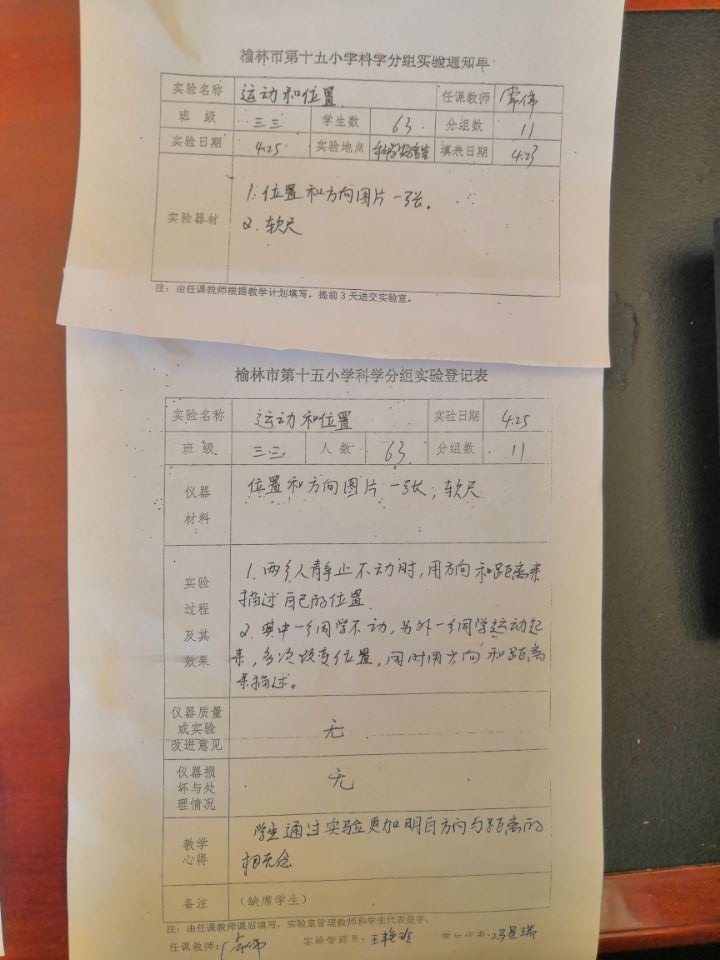 榆林市第十五小学科学分组实验通知单
实验名称 运动和位置 任课教师
班 级 三三 学生数 63 分组数 11
实验日期 4.25 实验地点 科学实验室 填表日期 4.23
实验器材
1. 位置和方向图片一张。
2. 软尺
注：由任课教师根据教学计划填写，提前3天送交实验室。
榆林市第十五小学科学分组实验登记表
实验名称 运动和位置 实验日期 4.25
班 级 三三 人 数 63 分组数 11
仪器
材料
位置和方向图片一张，软尺
实验
过程
及其
效果
1. 两个人静止不动时，用方向和距离来
描述自己的位置
2. 其中一个同学不动，另外一个同学运动起
来，多次改变位置，同时用方向和距离
来描述。
仪器质量
或实验
改进意见
无
仪器损
坏与处
理情况
无
教学
心得
学生通过实验更加明白方向与距离的
相关念
备注 （缺席学生）
注：由任课教师课后填写，实验室管理教师和学生代表签字。
任课教师： 实验管理员： 学生代表：